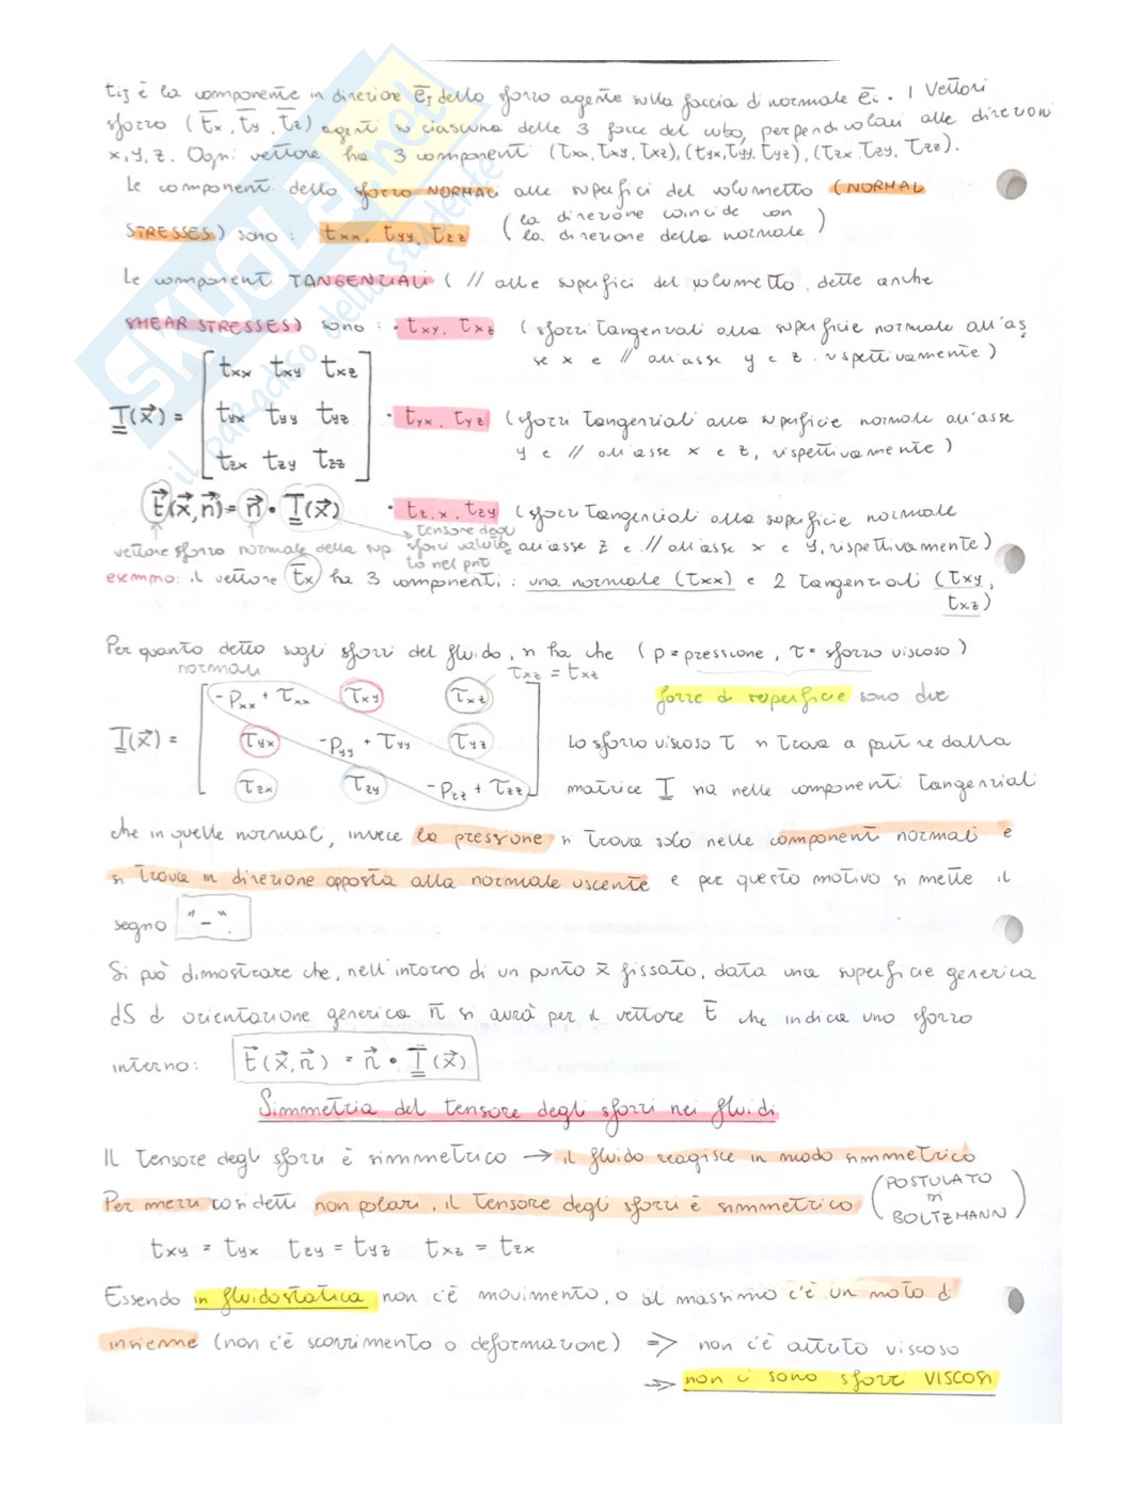 tij è la componente in direzione ēj dello sforzo agente sulla faccia di normale ēi. I vettori
sforzo (t̄x, t̄y, t̄z) agenti su ciascuna delle 3 facce del cubo, perpendicolari alle direzioni
x, y, z. Ogni vettore ha 3 componenti (txx, txy, txz), (tyx, tyy, tyz), (tzx, tzy, tzz).
Le componenti dello sforzo NORMALI alle superfici del volumetto (NORMAL
STRESSES) sono: txx, tyy, tzz (la direzione coincide con la direzione della normale)
Le componenti TANGENZIALI (// alle superfici del volumetto, dette anche
SHEAR STRESSES) sono: • txy, txz (sforzi tangenziali alla superficie normale all'as
se x e // all'asse y e z rispettivamente)
T(x⃗) = [txx txy txz
tyx tyy tyz
tzx tzy tzz]
• tyx, tyz (sforzi tangenziali alla superficie normale all'asse
y e // all'asse x e z, rispettivamente)
t⃗(x⃗,n⃗) = n⃗ • T(x⃗)
• tz,x, tzy (sforzi tangenziali alla superficie normale
all'asse z e // all'asse x e y, rispettivamente)
vettore sforzo normale della sup tensore degli sforzi valuta to nel pnt
esempio: il vettore t̄x ha 3 componenti: una normale (txx) e 2 tangenziali (txy,
txz)
Per quanto detto sugli sforzi del fluido, si ha che (p = pressione, τ = sforzo viscoso)
normali
τxz = txz
T(x⃗) = [-pxx + τxx τxy τxz
τyx -pyy + τyy τyz
τzx τzy -pzz + τzz]
forze di superficie sono due
Lo sforzo viscoso τ si trova a partire dalla
matrice T sia nelle componenti tangenziali
che in quelle normali, invece la pressione si trova solo nelle componenti normali e
si trova in direzione opposta alla normale uscente e per questo motivo si mette il
segno "-".
Si può dimostrare che, nell'intorno di un punto x̄ fissato, data una superficie generica
dS di orientazione generica n̄ si avrà per il vettore t̄ che indica uno sforzo
interno: t⃗(x⃗,n⃗) = n⃗ • T(x⃗)
Simmetria del tensore degli sforzi nei fluidi
Il tensore degli sforzi è simmetrico → il fluido reagisce in modo simmetrico
Per mezzi cosidetti non polari, il tensore degli sforzi è simmetrico (POSTULATO
DI
BOLTZMANN)
txy = tyx tzy = tyz txz = tzx
Essendo in fluidostatica non c'è movimento, o al massimo c'è un moto d
insieme (non c'è scorrimento o deformazione) => non c'è attrito viscoso
=> non ci sono sforzi VISCOSI
SKUOLA.net
il paradiso dello studente